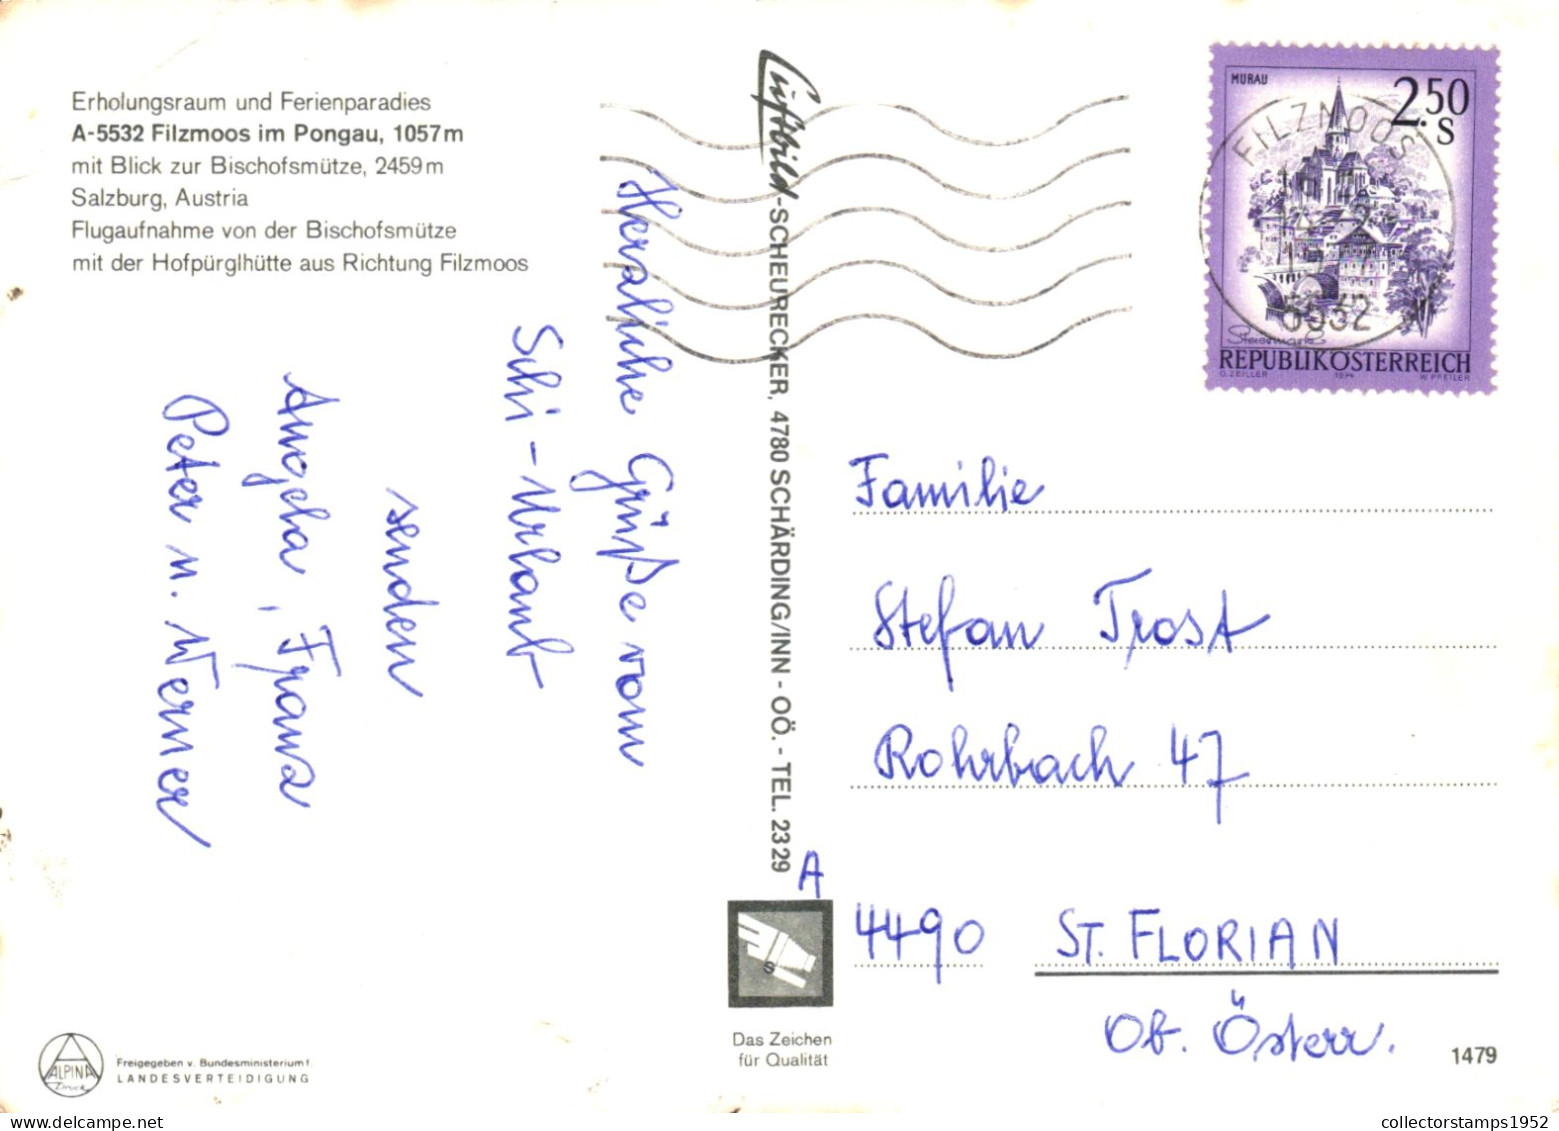 Erholungsraum und Ferienparadies
A-5532 Filzmoos im Pongau, 1057 m
mit Blick zur Bischofsmütze, 2459 m
Salzburg, Austria
Flugaufnahme von der Bischofsmütze
mit der Hofpürglhütte aus Richtung Filzmoos
Herzliche Grüße vom
Schi-Urlaub
senden
Angela, Franz
Peter u. Werner
Luftbild-SCHEURECKER, 4780 SCHÄRDING/INN - OÖ. - TEL. 23 29
MURAU
2.50
S
FILZMOOS
5532
Steiermark
REPUBLIK ÖSTERREICH
O. ZEILLER 1974 W. PFEILER
Familie
Stefan Trost
Rohrbach 47
A
4490 ST. FLORIAN
Ob. Österr.
Das Zeichen
für Qualität
1479
ALPINA
Druck
Freigegeben v. Bundesministerium f.
LANDESVERTEIDIGUNG
collectorstamps1952